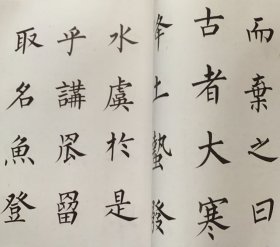 而棄之曰
古者大寒
降土蟄發
水虞於是
乎講罛罶
取名魚登